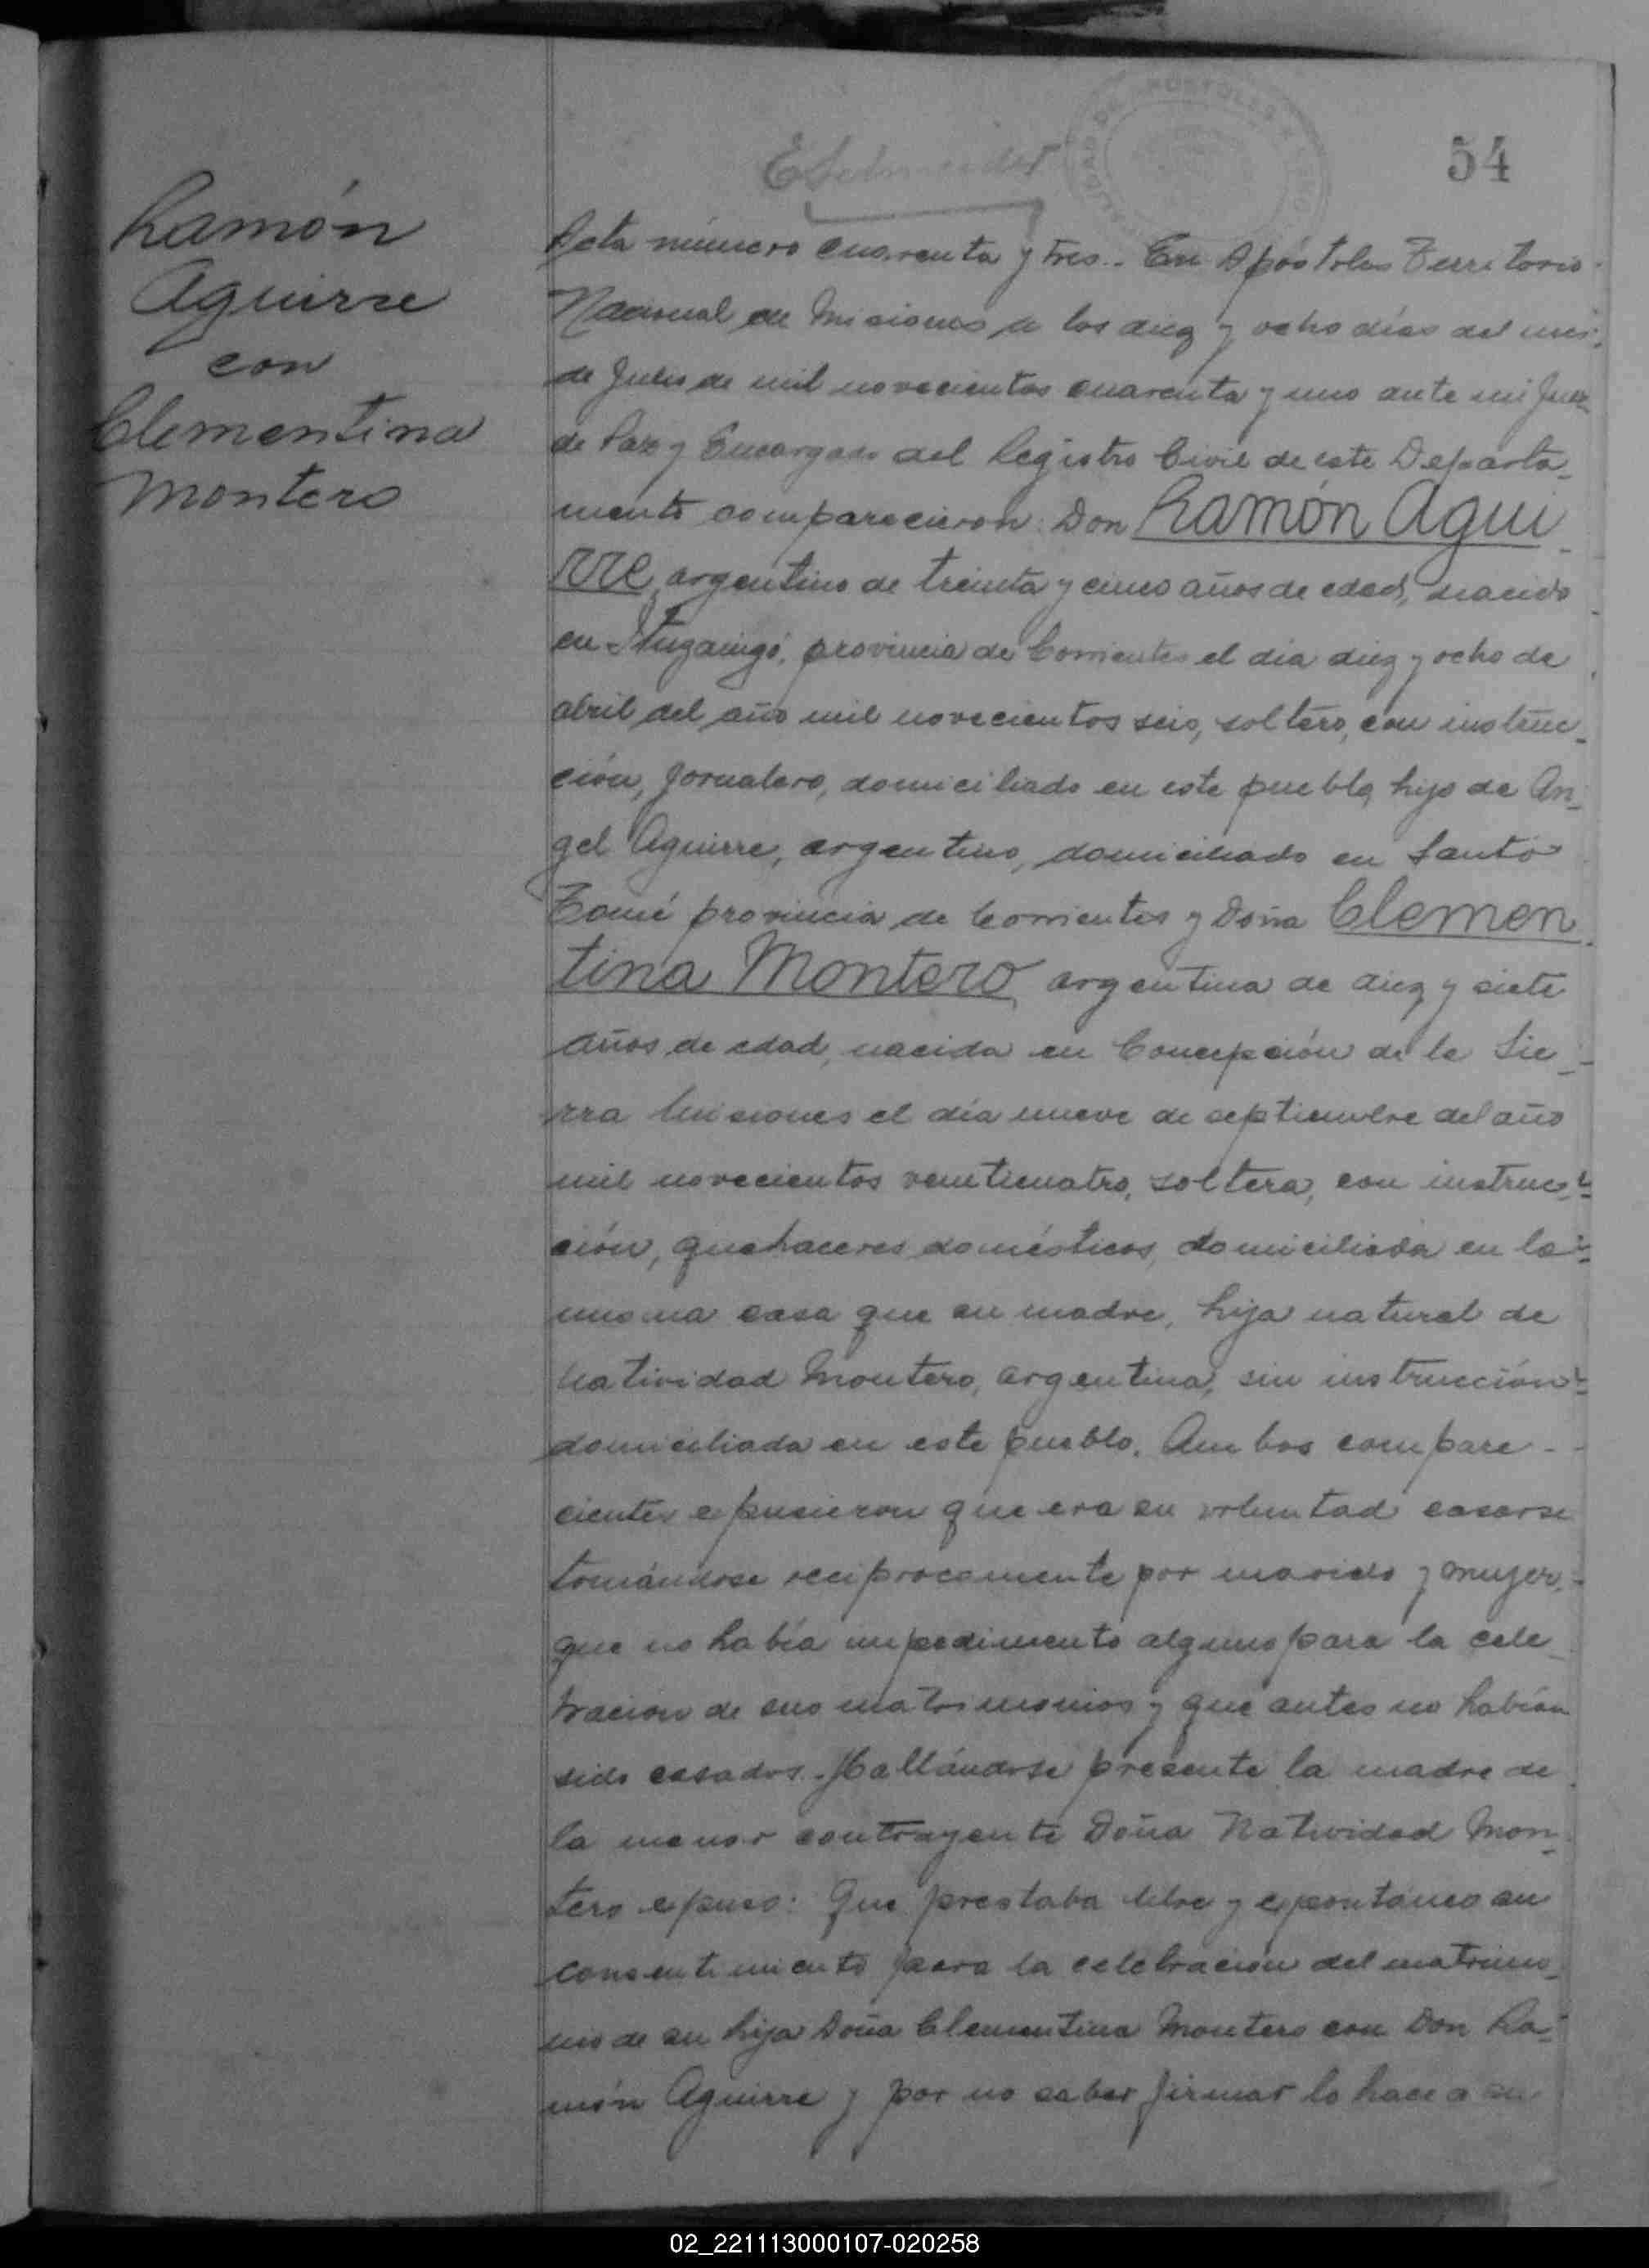 54
Ramón
Aguirre
con
Clementina
Montero
Acta número cuarenta y tres.- En Apóstoles Territorio
Nacional de Misiones a los diez y ocho días del mes
de Julio de mil novecientos cuarenta y uno ante mi Juez
de Paz y Encargado del Registro Civil de este Departa-
mento comparecieron: Don Ramón Agui-
rre, argentino de treinta y cinco años de edad, nacido
en Ituzaingó, provincia de Corrientes el día diez y ocho de
abril del año mil novecientos seis, soltero, con instruc-
ción, Jornalero, domiciliado en este pueblo, hijo de An-
gel Aguirre, argentino, domiciliado en Santo
Tomé provincia de Corrientes y Doña Clemen-
tina Montero, argentina de diez y siete
años de edad, nacida en Concepción de la Sie-
rra Misiones el día nueve de septiembre del año
mil novecientos veinticuatro, soltera, con instruc-
ción, quehaceres domésticos, domiciliada en la
misma casa que su madre, hija natural de
Natividad Montero, argentina, sin instrucción
domiciliada en este pueblo. Ambos compare-
cientes epusieron que era su voluntad casarse
tomándose reciprocamente por marido y mujer,
que no había impedimento alguno para la cele-
bracion de sus matrimonios y que antes no habían
sido casados. Hallándose presente la madre de
la menor contrayente Doña Natividad Mon-
tero epuso: Que prestaba libre y epontaneo su
consentimiento para la celebración del matrimo-
nio de su hija Doña Clementina Montero con Don Ra-
món Aguirre y por no saber firmar lo hace a su
02_221113000107-020258